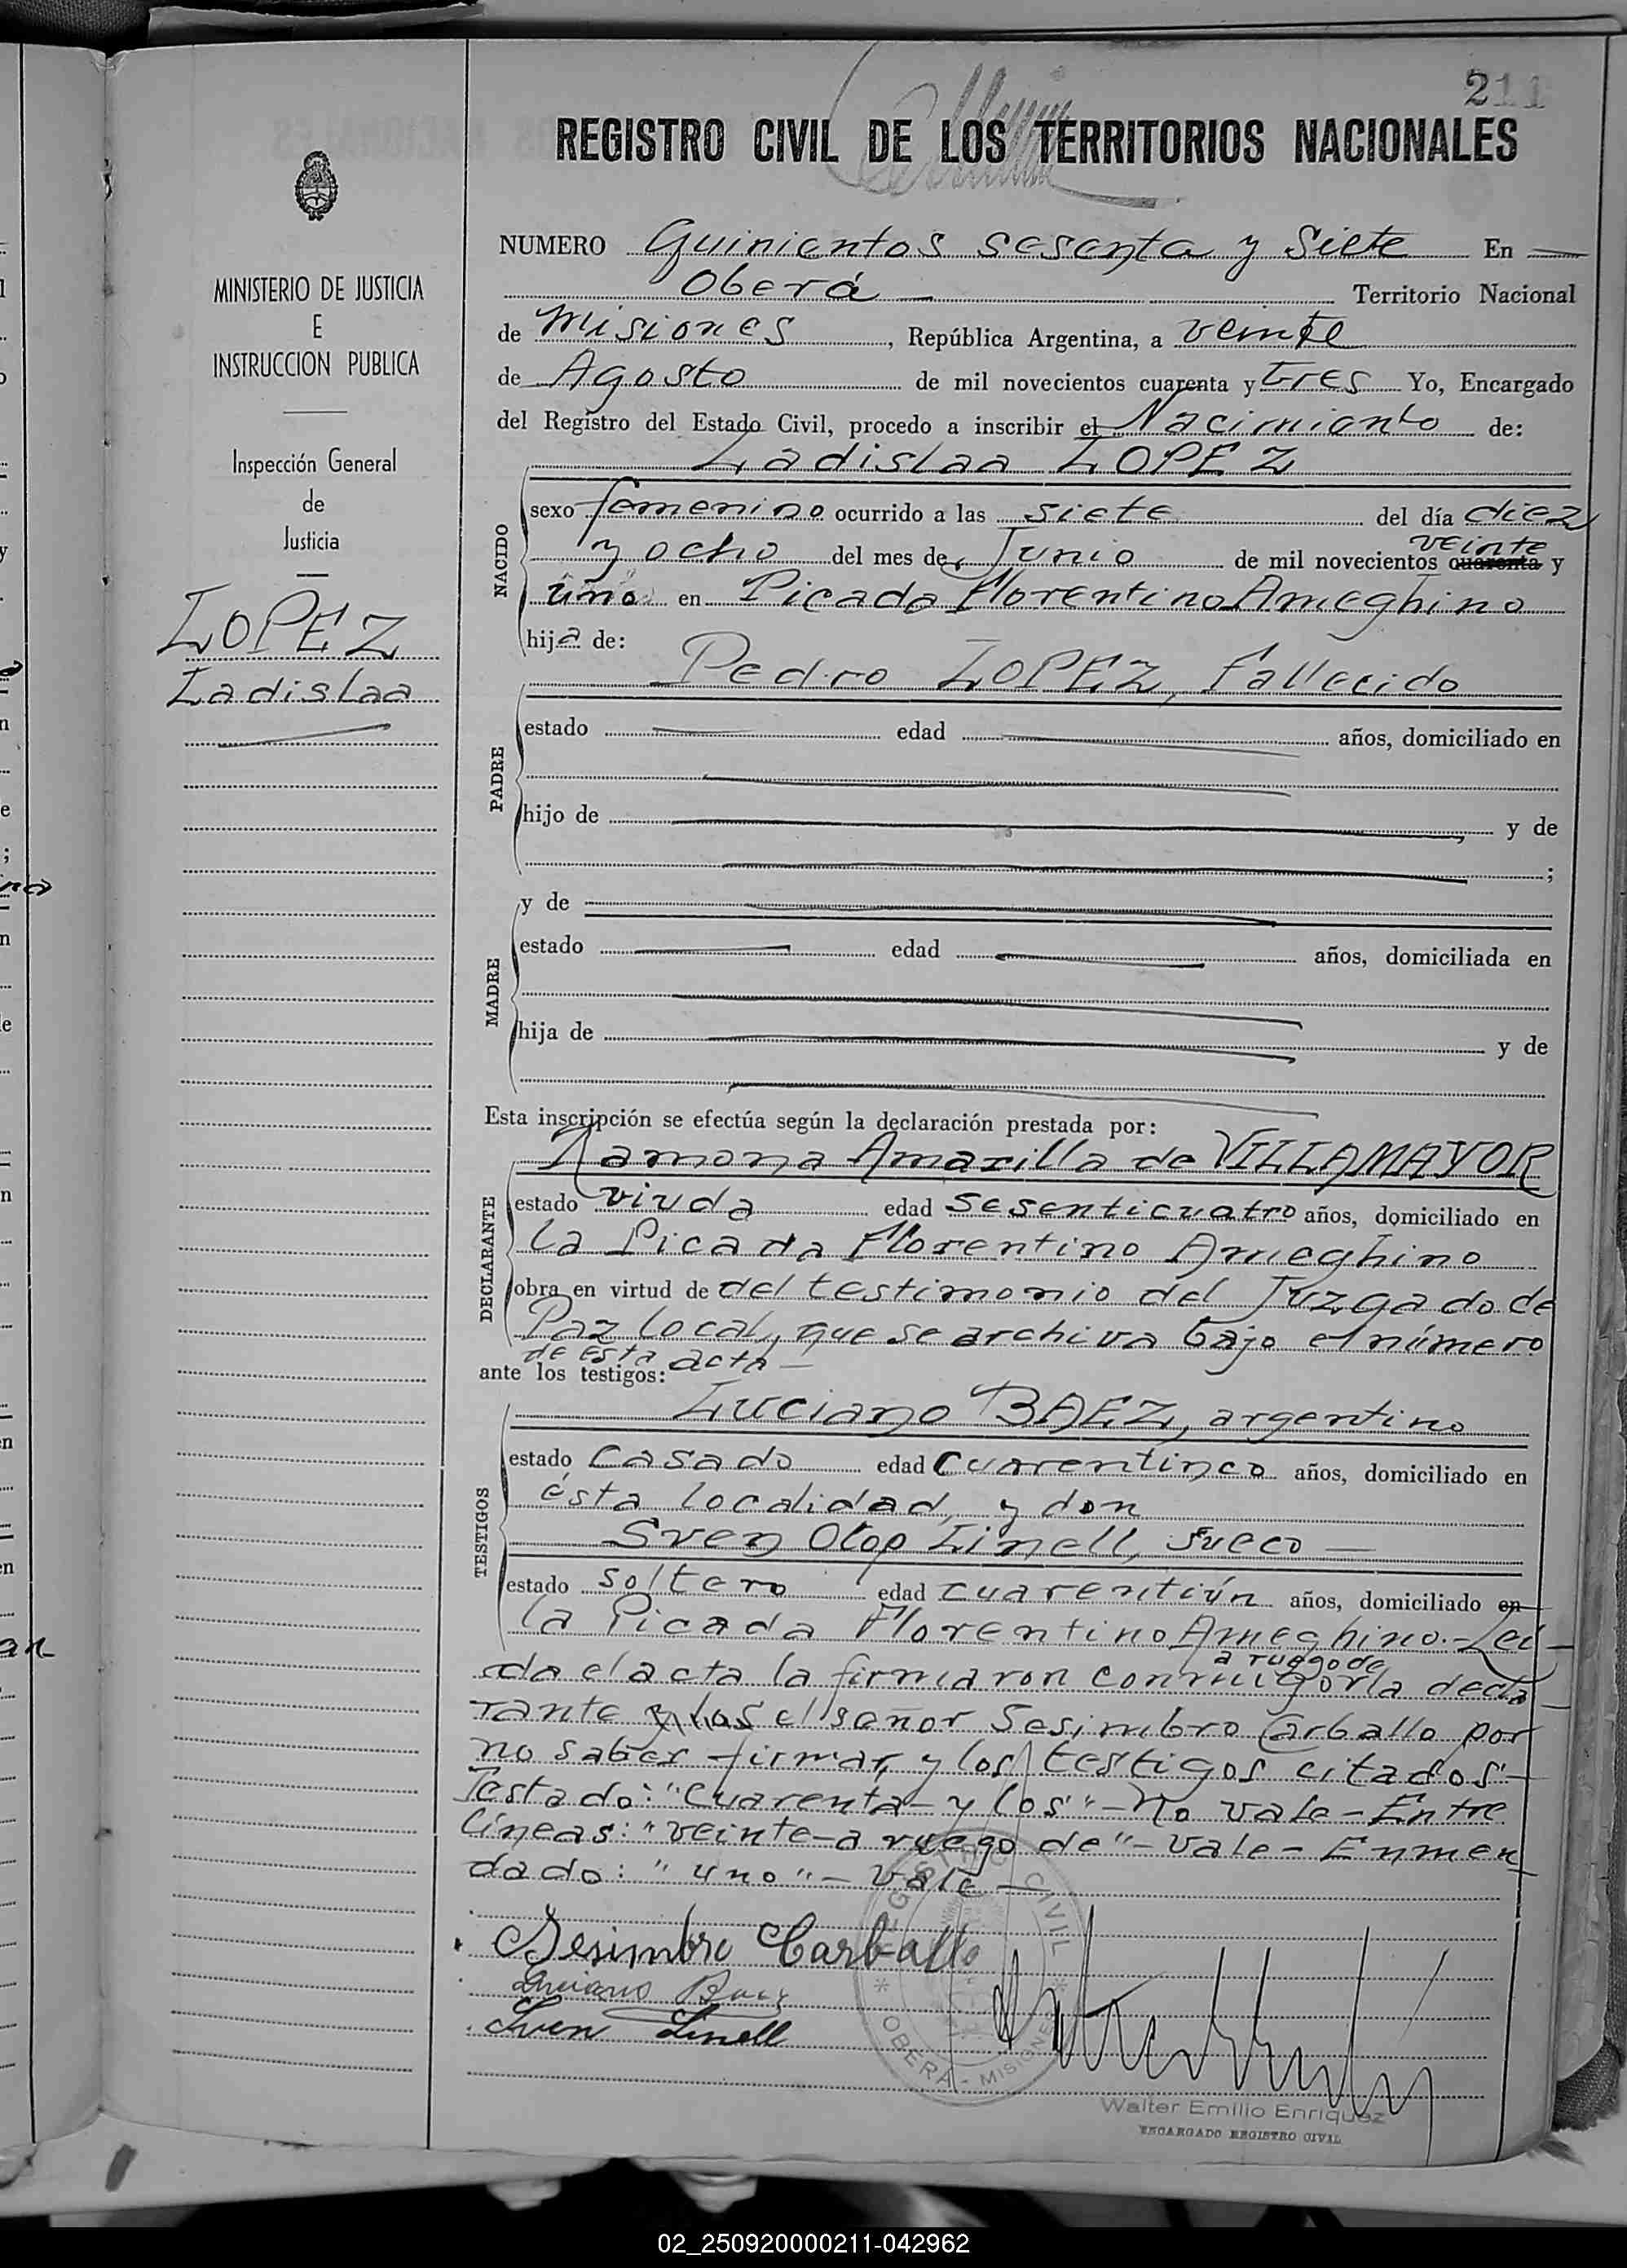 211
REGISTRO CIVIL DE LOS TERRITORIOS NACIONALES
MINISTERIO DE JUSTICIA
E
INSTRUCCION PUBLICA
Inspección General
de
Justicia
LOPEZ
Ladislaa
NUMERO Quinientos sesenta y Siete En
Oberá Territorio Nacional
de Misiones, República Argentina, a veinte
de Agosto de mil novecientos cuarenta y tres Yo, Encargado
del Registro del Estado Civil, procedo a inscribir el Nacimiento de:
Ladislaa LOPEZ
NACIDO
sexo femenino ocurrido a las siete del día diez
veinte
y ocho del mes de Junio de mil novecientos cuarenta y
uno en Picada Florentino Ameghino
hija de:
Pedro LOPEZ, Fallecido
PADRE
estado edad años, domiciliado en
hijo de y de
;
y de
MADRE
estado edad años, domiciliada en
hija de y de
Esta inscripción se efectúa según la declaración prestada por:
Ramona Amarilla de VILLAMAYOR
DECLARANTE
estado viuda edad sesenticuatro años, domiciliado en
la Picada Florentino Ameghino
obra en virtud de del testimonio del Juzgado de
Paz local, que se archiva bajo el número
de esta acta
ante los testigos:
Luciano BAEZ, argentino
TESTIGOS
estado Casado edad Cuarentinco años, domiciliado en
ésta localidad, y don
Sven Olop Linell, sueco
estado soltero edad cuarentiún años, domiciliado en
la Picada Florentino Ameghino.- Leí-
a ruego de
da el acta la firmaron conmigo la decla-
rante y los el señor Sesimbro Carballo por
no saber firmar, y los testigos citados"-
Testado: "Cuarenta - y los" - No vale - Entre
líneas: "veinte - a ruego de" - Vale - Enmen
dado: "uno" - Vale
Sesimbro Carballo
Luciano Baez
Sven Linell
REGISTRO CIVIL
* OBERA - MISIONES *
Walter Emilio Enriquez
ENCARGADO REGISTRO CIVIL
02_250920000211-042962